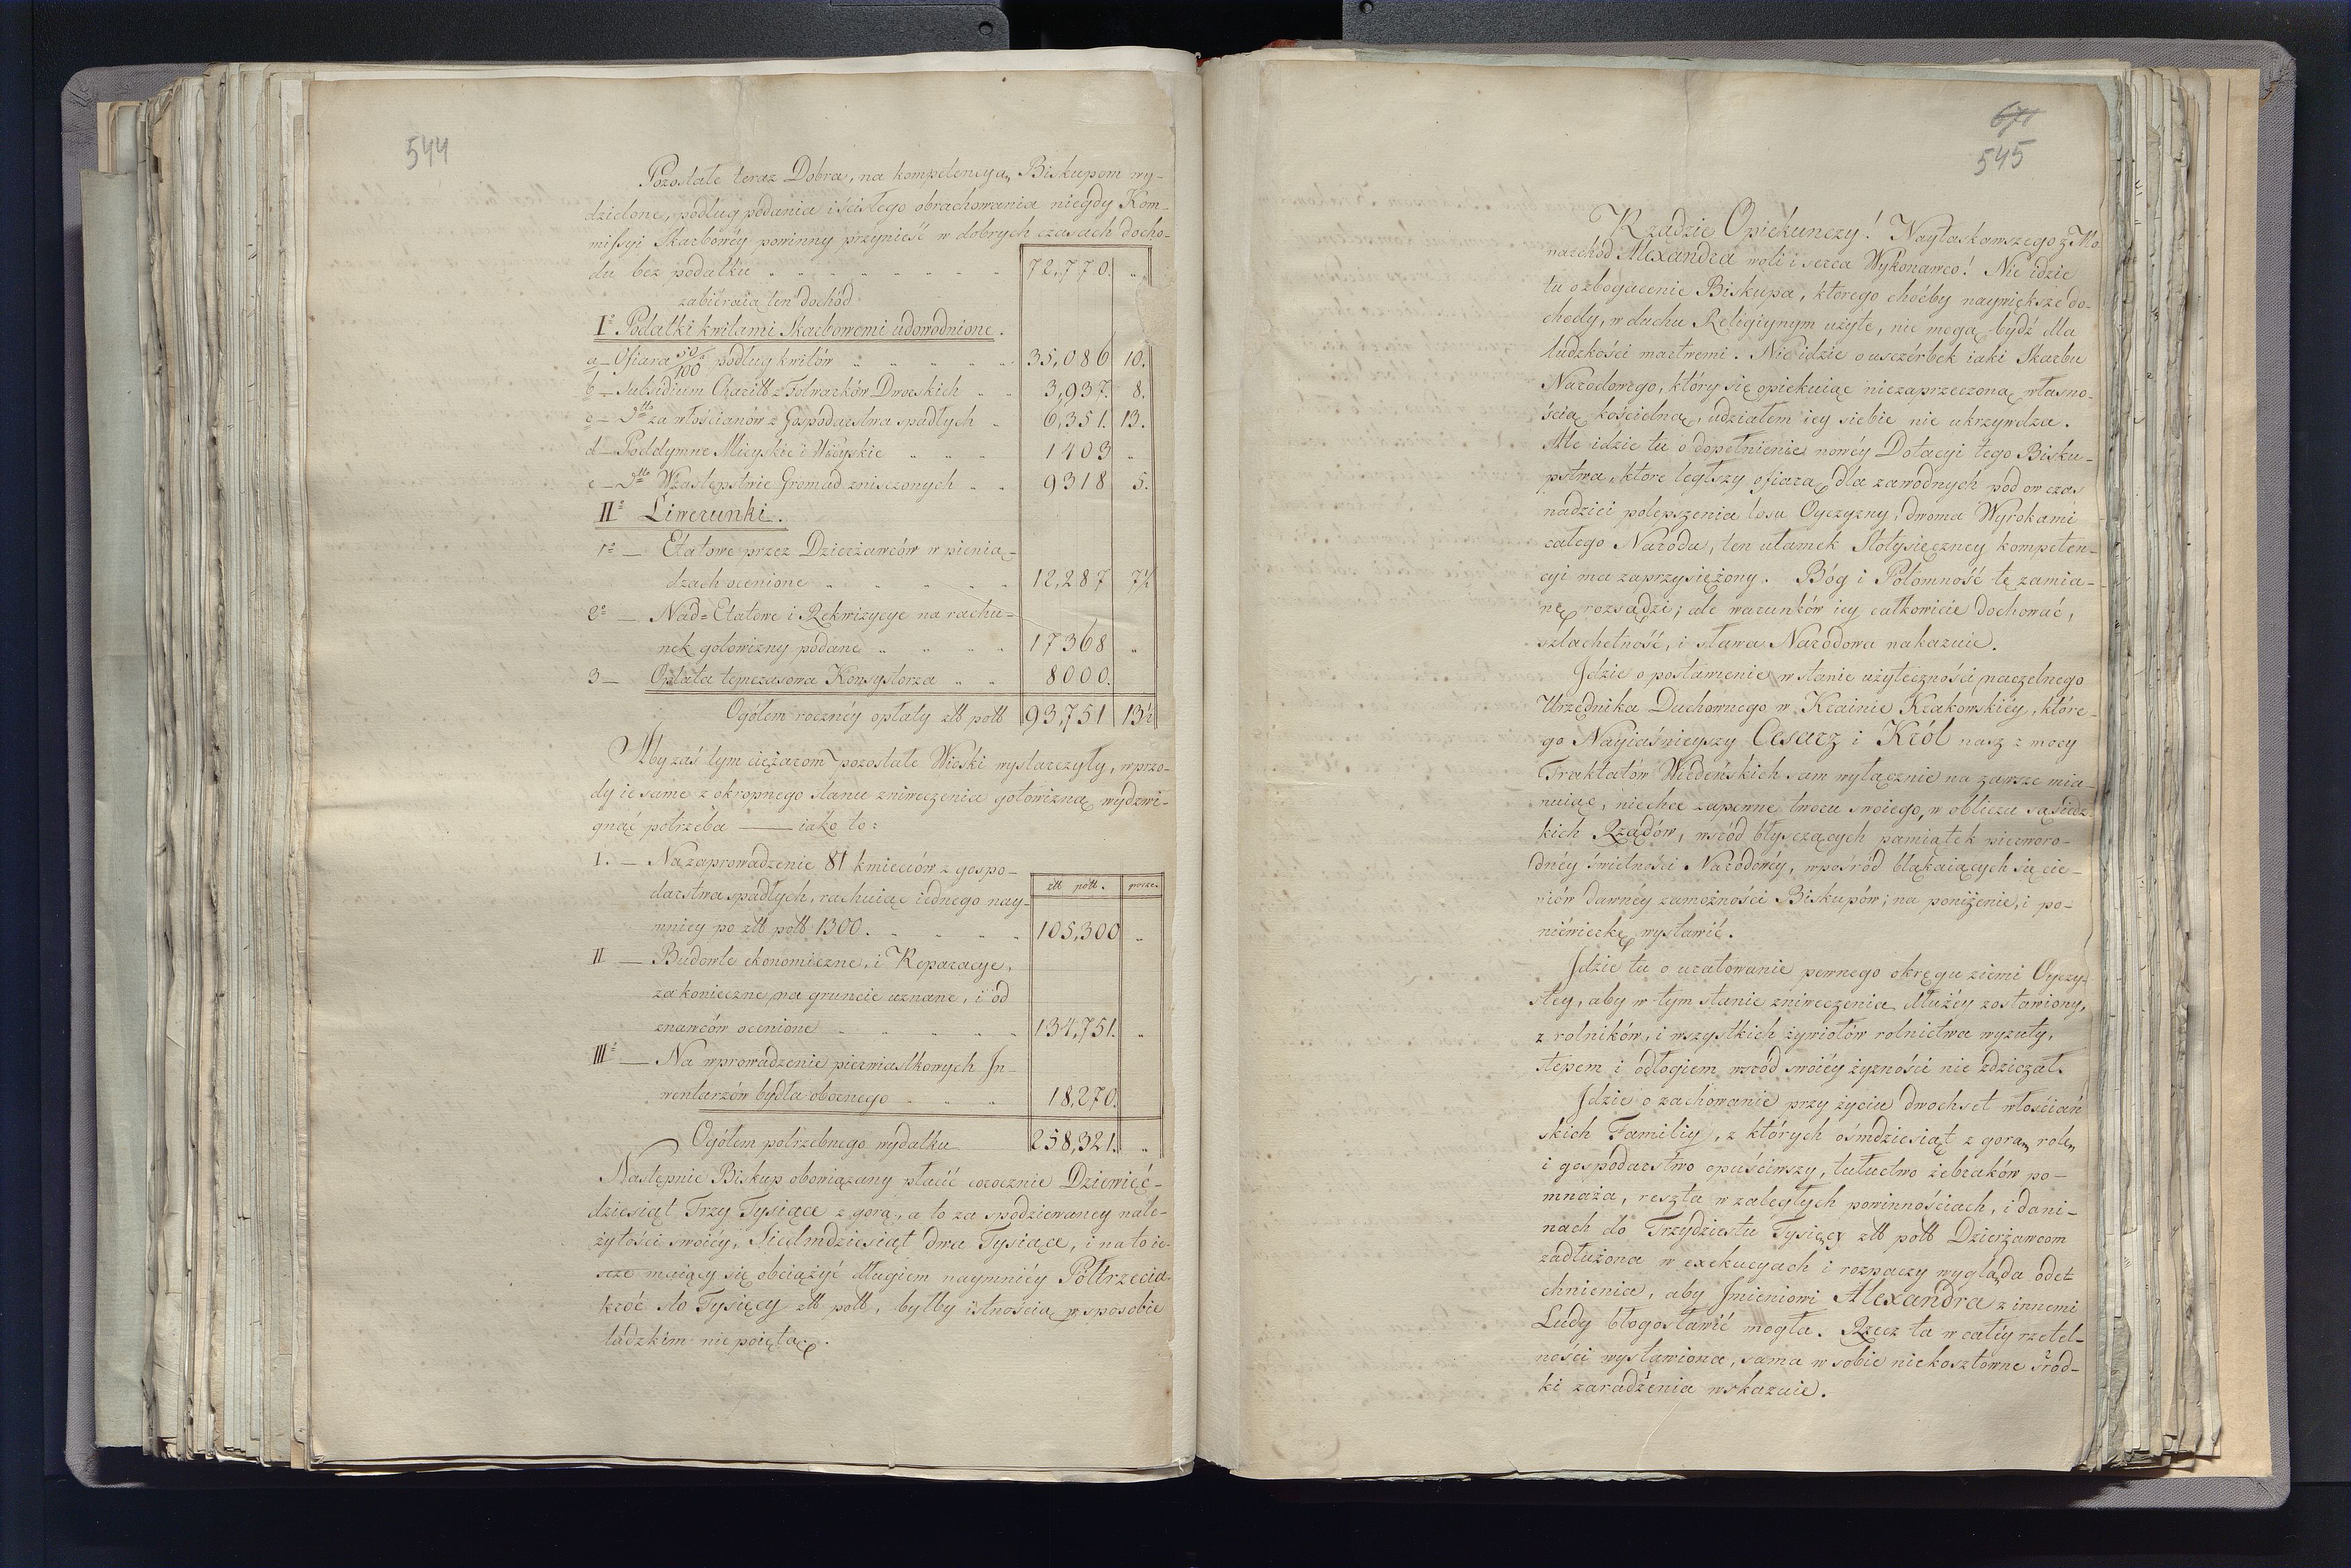 544
Pozostałe teraz Dobra, na kompetencyą Biskupom wy-
dzielone, podług podania i ścisłego obrachowania niegdy Kom-
missyi Skarbowéy powinny przynieść w dobrych czasach docho-
du bez podatku „ „ „ „ „ „ „ 72,770. „
zabieraią ten dochód
I° Podatki kwitami Skarbowemi udowodnione.
a – Ofiara 50/100 podług kwitów „ „ „ „ „ 35,086 10.
b – Subsidium Charitt z Folwarków Dworskich „ „ 3,937. 8.
c – Dtto za włościanów z Gospodarstwa spadłych „ 6,351. 13.
d – Poddymne Mieyskie i Wieyskie „ „ „ 1403 „
e – Dtto W zastępstwie Gromad zniszczonych „ „ 9318 5.
II° Liwerunki.
1° — Etatowe przez Dzierżawców w pienią-
dzach ocenione „ „ „ „ „ 12,287 7½
2° — Nad=Etatowe i Rekwizycye na rachu-
nek gotowizny podane „ „ „ „ 17368 „
3 — Opłata temczasowa Konsystorza „ „ 8000.
Ogółem rocznéy opłaty złł poll 93,751 13½
Aby zaś tym ciężarom pozostałe Wioski wystarczyły, wprzo-
dy ie same z okropnego stanu zniweczenia gotowizną wydźwi-
gnąć potrzeba — iako to:
I. — Na zaprowadzenie 81 kmieciów z gospo- złł poll. grosze.
darstwa spadłych, rachuiąc iednego nay-
mniey po złł poll 1300. „ „ „ „ 105,300 „
II — Budowle ekonomiczne, i Reparacye,
za konieczne na gruncie uznane, i od
znawców ocenione „ „ „ „ „ 134,751. „
III° — Na wprowadzenie pierwiastkowych In-
wentarzów bydła obornego „ „ „ 18,270.
Ogółem potrzebnego wydatku 258,321. „
Następnie Biskup obowiązany płacić corocznie Dziewięć-
dziesiąt Trzy Tysiące z gorą, a to za spodziewaney nale-
żytości swoiéy, Siedmdziesiąt dwa Tysiące, i na to ie-
scze maiący się obciążyć długiem naymniéy Półtrzecia-
kroć sto Tysięcy złł poll, byłby istnością w sposobie
ludzkim nie poiętą.
671
545
Rządzie Opiekunczy! Nayłaskawszego z Mo-
narchód Alexandra woli i serca Wykonawco! Nie idzie
tu o zbogacenie Biskupa, ktorego choćby naywiększe do-
chody, w duchu Religiynym użyte, nie mogą bydź dla
ludzkości martwemi. Nie idzie o usczérbek iaki Skarbu
Narodowego, który się opiekuiąc niezaprzeczoną własno-
ścią kościelną, udziałem iey siebie nie ukrzywdza.
Ale idzie tu o dopełnienie nowéy Dotacyi tego Bisku-
pstwa, któreległszy ofiarą dla zawodnych pod ow czas
nadziei polepszenia losu Oyczyzny, dwoma Wyrokami
całego Narodu, ten ułamek Stotysięczney kompeten-
cyi ma zaprzysiężony. Bóg i Potomność tę zamia-
nę rozsądzi; ale warunków iey całkowicie dochować,
szlachetność, i sława Narodowa nakazuie.
Idzie o postawienie w stanie użyteczności naczelnego
Urzędnika Duchownego w Krainie Krakowskiéy, które-
go Nayiaśnieyszy Cesarz i Król nasz z mocy
Traktatów Wiedeńskich sam wyłącznie na zawsze mia-
nuiąc, niechce zapewne tworu swoiego, w obliczu sąsiedz-
kich Rządów, wśród błysczących pamiątek pierworo-
dnéy świetności Narodowéy, wpośród błąkaiących się cie-
niów dawnéy zamożności Biskupów; na poniżenie, i po-
niéwierkę wystawić.
Idzie tu o uratowanie pewnego okręgu ziemi Oyczy-
stey, aby w tym stanie zniweczenia dłużéy zostawiony,
z rolników, i wszystkich żywiołów rolnictwa wyzuty,
stepem i odłogiem wśród swoiéy żyzności nie zdziczał.
Idzie o zachowanie przy życiu dwochset włościań
skich Familiy, z których ośmdziesiąt z gorą rolę
i gospodarstwo opuściwszy, tułactwo żebraków po-
mnaża, reszta w zaległych powinnościach, i dani-
nach do Trzydziestu Tysięcy złł poll Dzierżawcom
zadłużona w exekucyach i rozpaczy wygląda odet-
chnienia, aby Imieniowi Alexandra z innemi
Ludy błogosławić mogła. Rzecz ta w całéy rzetel-
ności wystawiona, sama w sobie niekosztowne środ-
ki zaradzenia wskazuie.